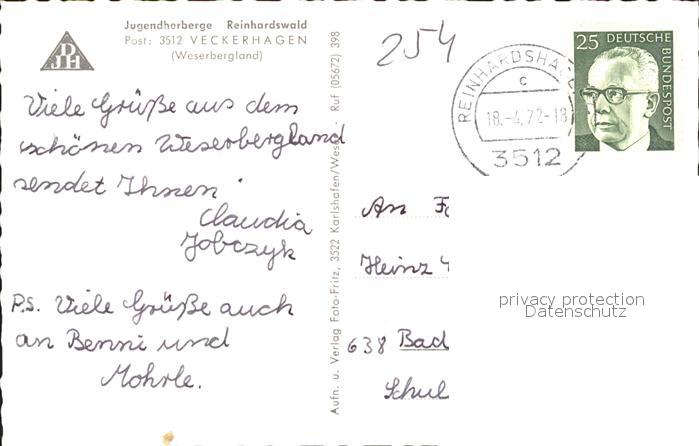 DJH
Jugendherberge Reinhardswald
Post: 3512 VECKERHAGEN
(Weserbergland)
254
25 DEUTSCHE
BUNDESPOST
REINHARDSHA
c
18.-4.72-18
3512
Viele Grüße aus dem
schönen Weserbergland
sendet Ihnen
Claudia
Jobczyk
P.S. Viele Grüße auch
an Benni und
Mohrle.
Aufn. u. Verlag Foto-Fritz, 3522 Karlshafen/Weser - Ruf (05672) 398
An
Heinz
638 Bad
Schul
privacy protection
Datenschutz